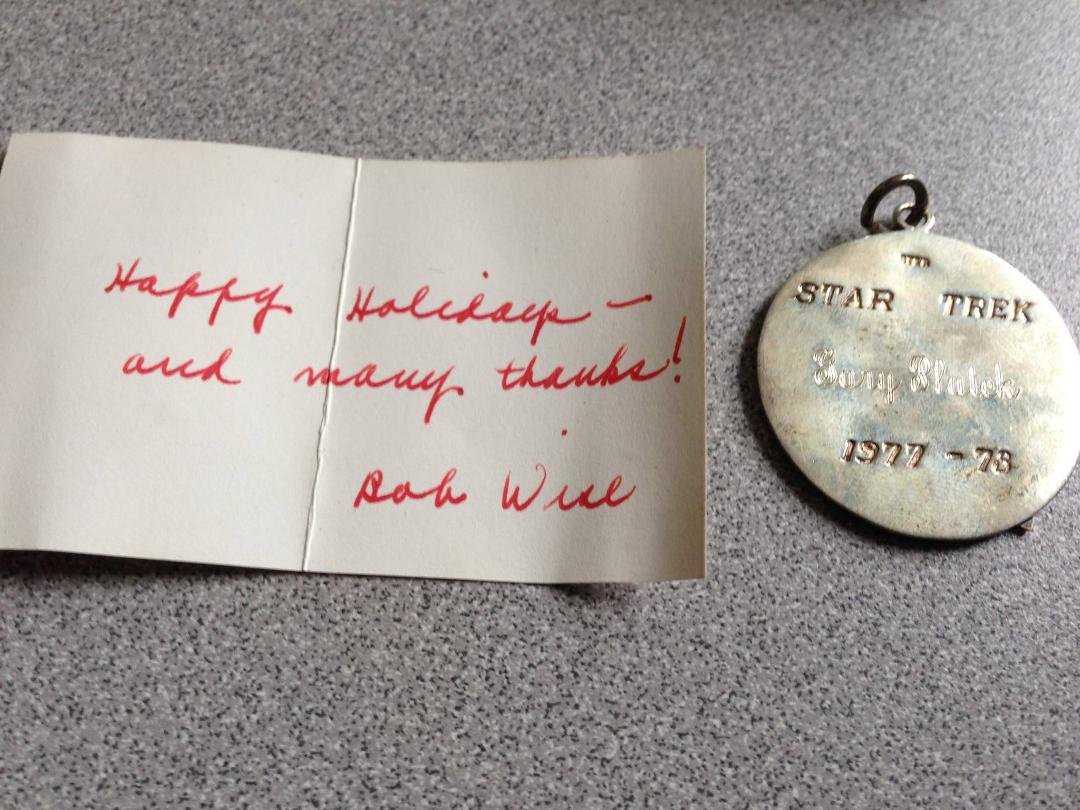 Happy Holidays —
and many thanks!
Bob Wise
STAR TREK
Gary
1977 - 78